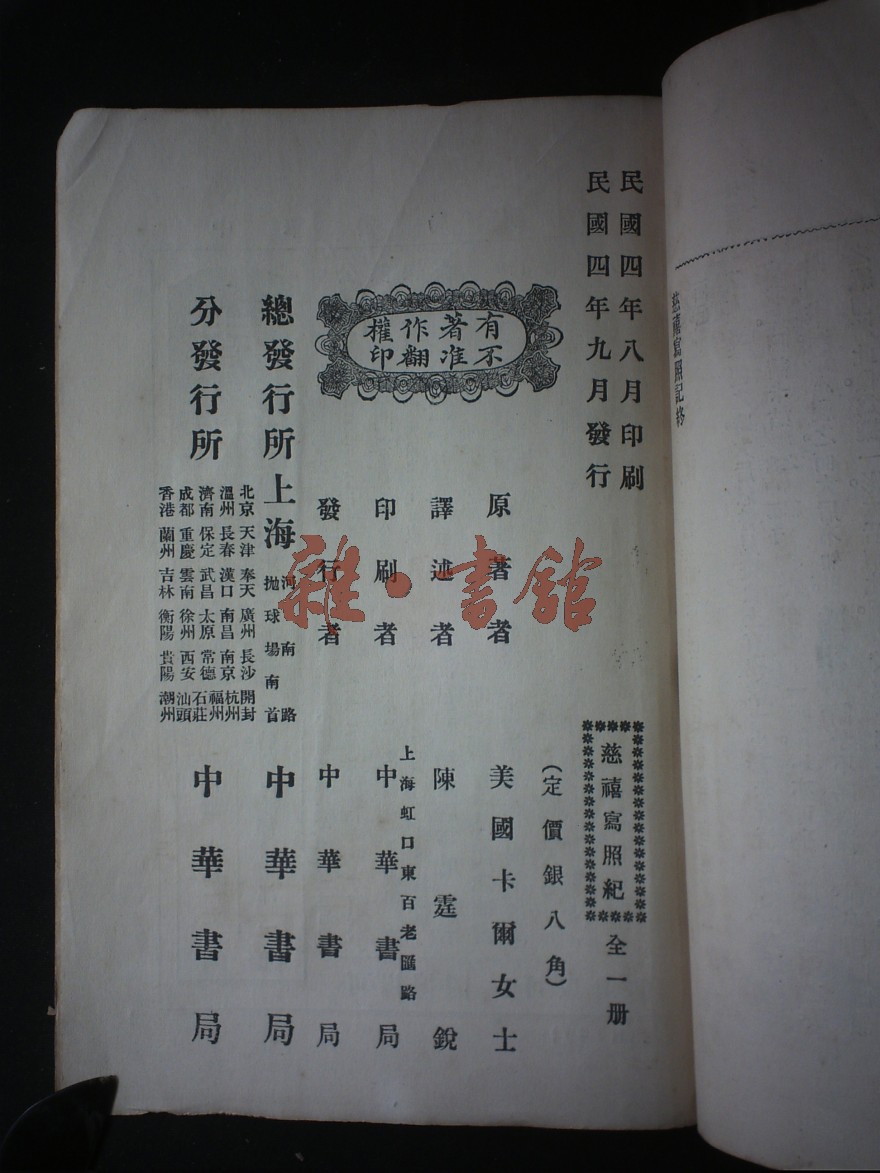 慈禧寫照記終
民國四年八月印刷
民國四年九月發行
慈禧寫照紀全一册
(定價銀八角)
有著作權
不准翻印
原著者 美國卡爾女士
譯述者 陳霆銳
印刷者 上海虹口東百老匯路 中華書局
發行者 中華書局
總發行所 上海 河南路 拋球場南首 中華書局
分發行所
北京 天津 奉天 廣州 長沙 開封
溫州 長春 漢口 南昌 南京 杭州
濟南 保定 武昌 太原 常德 福州
成都 重慶 雲南 徐州 西安 石莊
香港 蘭州 吉林 衡陽 貴陽 潮州 汕頭
中華書局
雜·書館